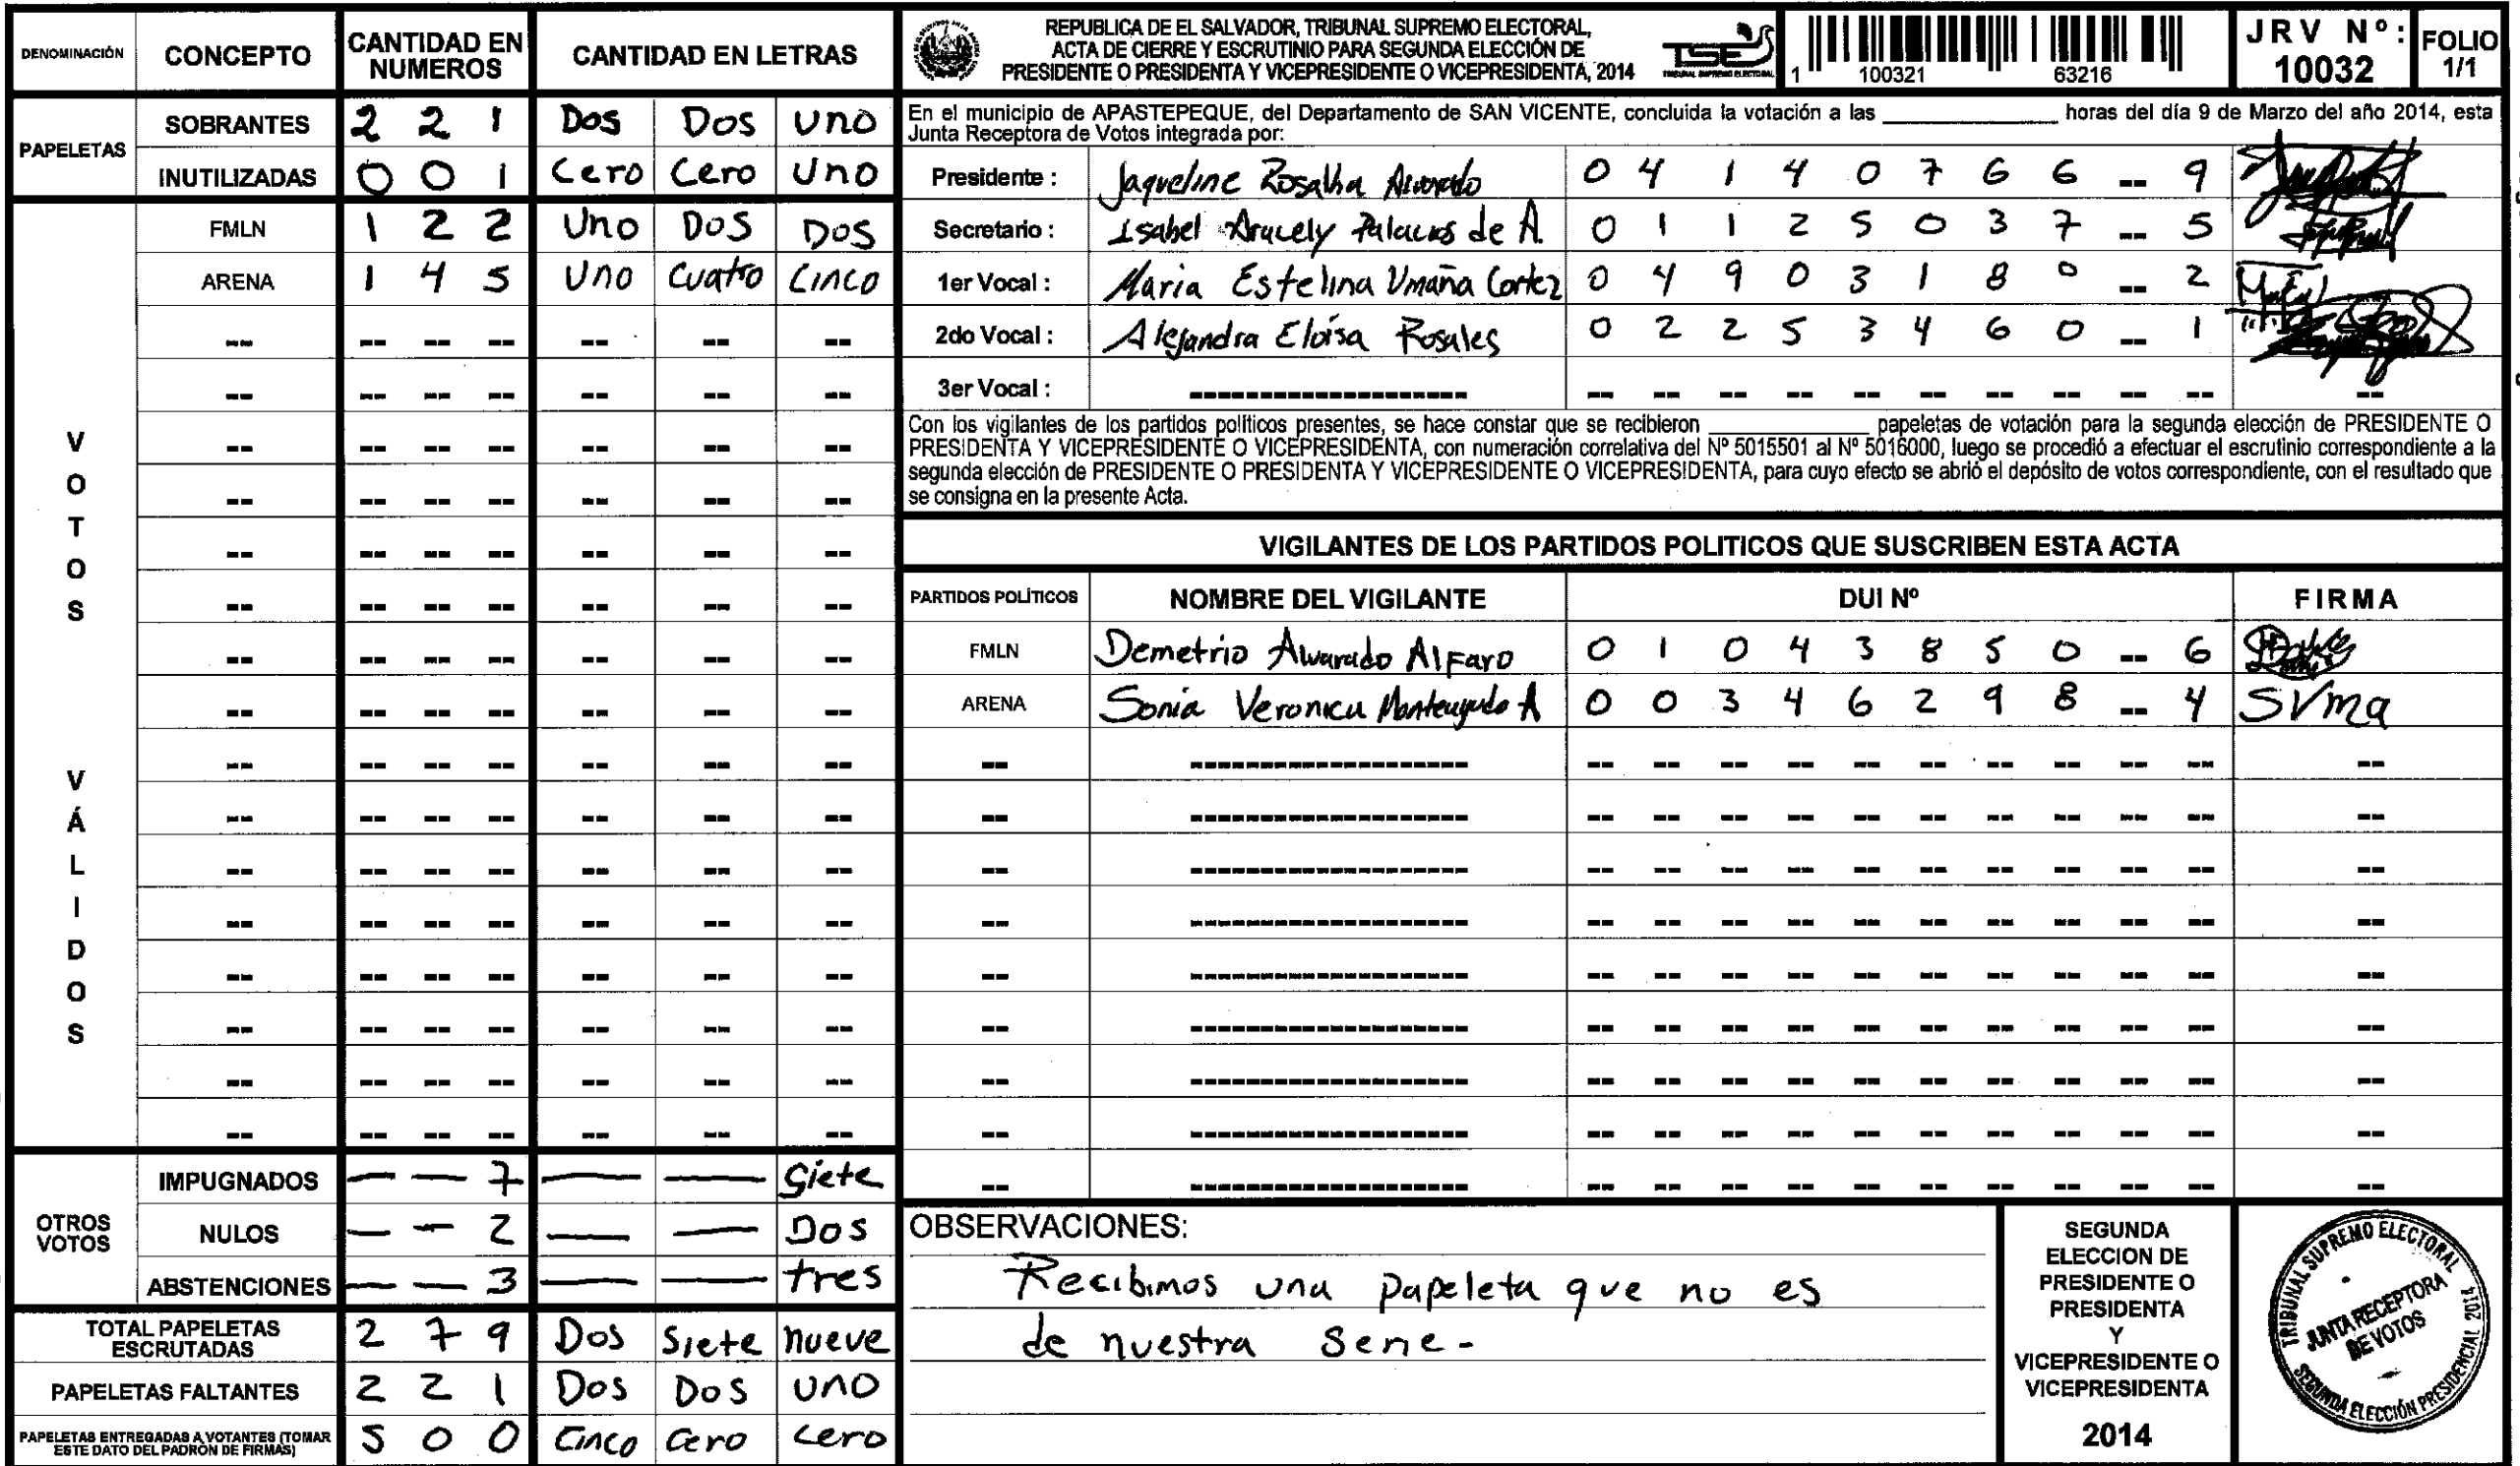 DENOMINACIÓN CONCEPTO CANTIDAD EN NUMEROS CANTIDAD EN LETRAS
PAPELETAS
SOBRANTES 2 2 1 Dos Dos Uno
INUTILIZADAS 0 0 1 Cero Cero Uno
VOTOS VÁLIDOS
FMLN 1 2 2 Uno Dos Dos
ARENA 1 4 5 Uno Cuatro Cinco
OTROS VOTOS
IMPUGNADOS — — 7 — — Siete
NULOS — — 2 — — Dos
ABSTENCIONES — — 3 — — tres
TOTAL PAPELETAS ESCRUTADAS 2 7 9 Dos Siete nueve
PAPELETAS FALTANTES 2 2 1 Dos Dos uno
PAPELETAS ENTREGADAS A VOTANTES (TOMAR ESTE DATO DEL PADRÓN DE FIRMAS) 5 0 0 Cinco Cero Cero
REPUBLICA DE EL SALVADOR, TRIBUNAL SUPREMO ELECTORAL,
ACTA DE CIERRE Y ESCRUTINIO PARA SEGUNDA ELECCIÓN DE
PRESIDENTE O PRESIDENTA Y VICEPRESIDENTE O VICEPRESIDENTA, 2014
TSE
TRIBUNAL SUPREMO ELECTORAL
1 100321 63216
JRV Nº: 10032
FOLIO 1/1
En el municipio de APASTEPEQUE, del Departamento de SAN VICENTE, concluida la votación a las ____ horas del día 9 de Marzo del año 2014, esta
Junta Receptora de Votos integrada por:
Presidente : Jaqueline Rosalba Alvarado 0 4 1 4 0 7 6 6 -- 9
Secretario : Isabel Aracely Palacios de A. 0 1 1 2 5 0 3 7 -- 5
1er Vocal : Maria Estelina Umaña Cortez 0 4 9 0 3 1 8 0 -- 2
2do Vocal : Alejandra Eloisa Rosales 0 2 2 5 3 4 6 0 -- 1
3er Vocal :
Con los vigilantes de los partidos políticos presentes, se hace constar que se recibieron ____ papeletas de votación para la segunda elección de PRESIDENTE O
PRESIDENTA Y VICEPRESIDENTE O VICEPRESIDENTA, con numeración correlativa del Nº 5015501 al Nº 5016000, luego se procedió a efectuar el escrutinio correspondiente a la
segunda elección de PRESIDENTE O PRESIDENTA Y VICEPRESIDENTE O VICEPRESIDENTA, para cuyo efecto se abrió el depósito de votos correspondiente, con el resultado que
se consigna en la presente Acta.
VIGILANTES DE LOS PARTIDOS POLITICOS QUE SUSCRIBEN ESTA ACTA
PARTIDOS POLÍTICOS NOMBRE DEL VIGILANTE DUI Nº FIRMA
FMLN Demetrio Alvarado Alfaro 0 1 0 4 3 8 5 0 -- 6
ARENA Sonia Veronica A 0 0 3 4 6 2 9 8 -- 4 SVMA
OBSERVACIONES:
Recibimos una papeleta que no es
de nuestra Serie-
SEGUNDA
ELECCION DE
PRESIDENTE O
PRESIDENTA
Y
VICEPRESIDENTE O
VICEPRESIDENTA
2014
TRIBUNAL SUPREMO ELECTORAL
JUNTA RECEPTORA
DE VOTOS
SEGUNDA ELECCIÓN PRESIDENCIAL 2014